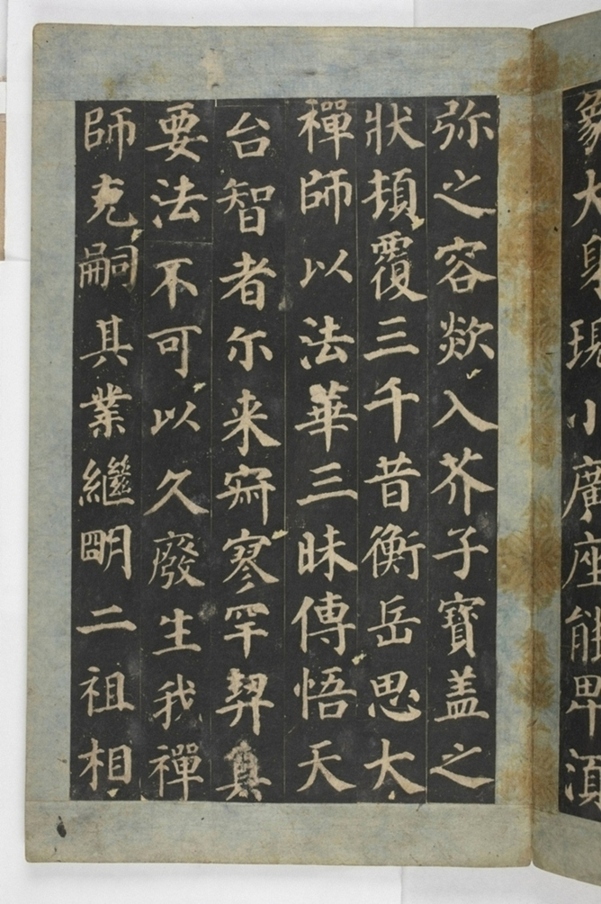 象大身現小廣座能卑湏
弥之容欻入芥子寶盖之
狀頓覆三千昔衡岳思大
禪師以法華三昧傳悟天
台智者尔来寂寥罕契真
要法不可以久廢生我禪
師克嗣其業繼明二祖相